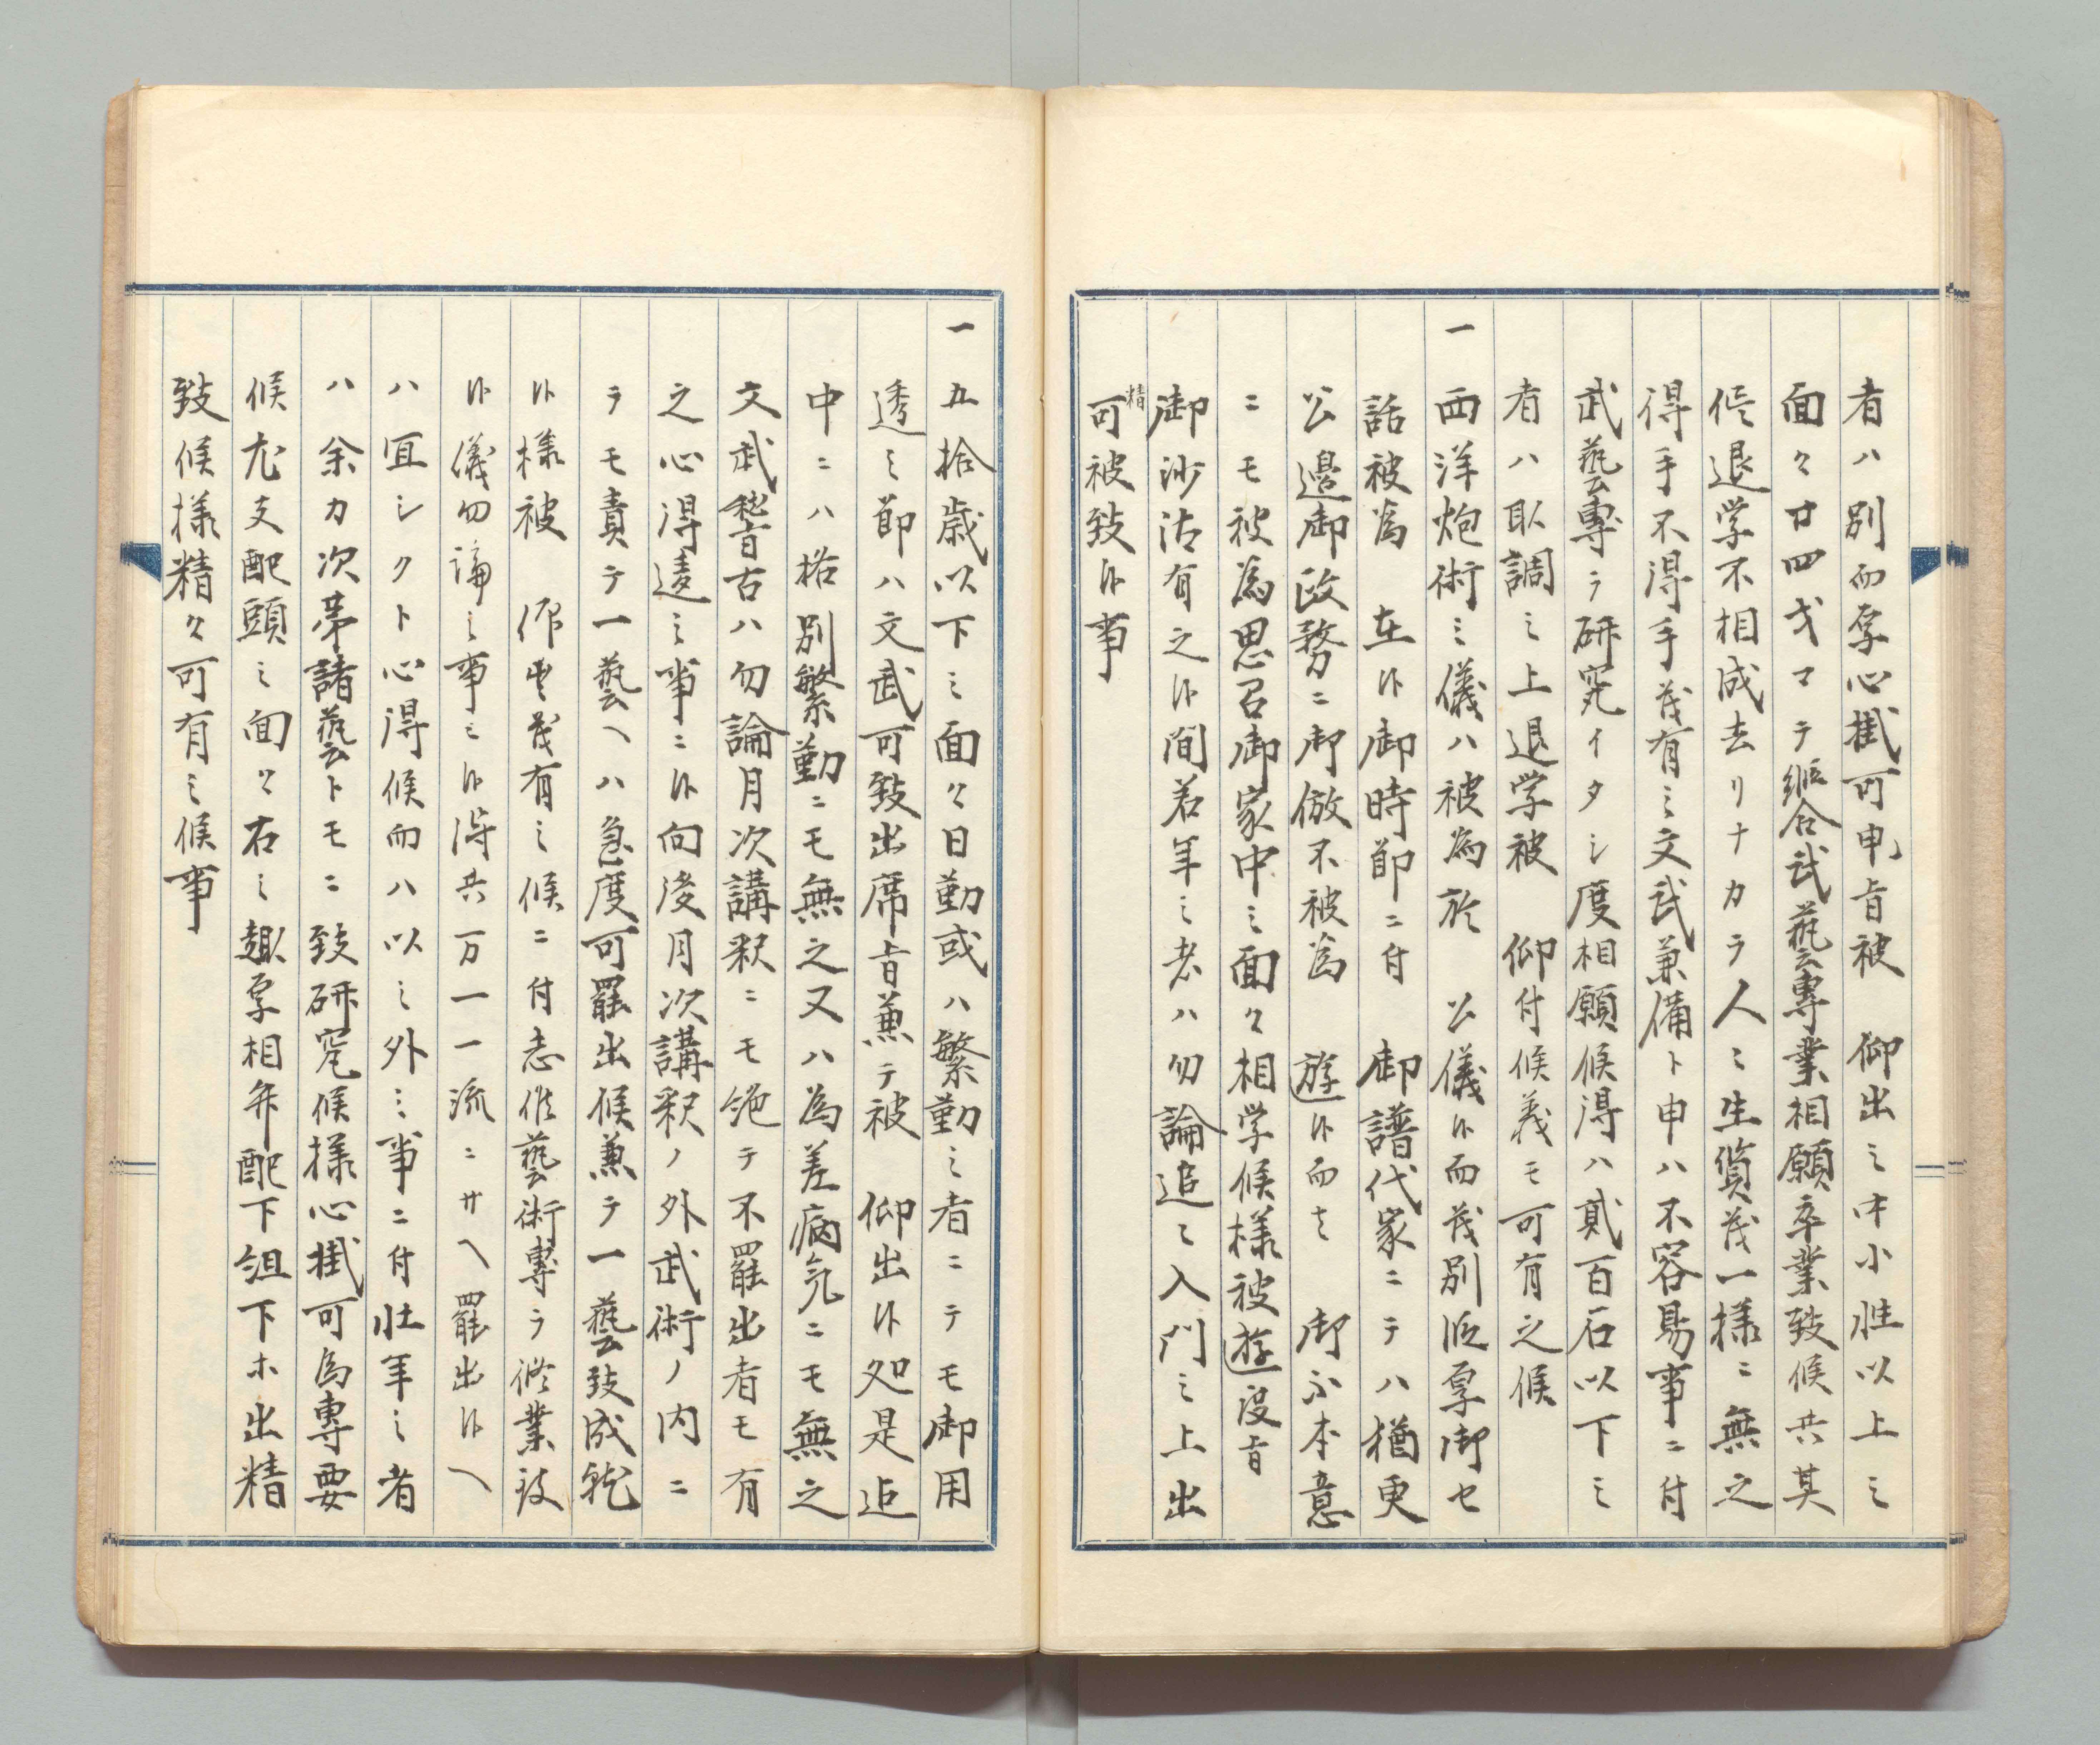 者ハ別而厚心掛可申旨被　仰出之中小性以上之
面々廿四才マテ繰合武藝專業相願卒業致候共其
侭退学不相成去リナカラ人々生質茂一様ニ無之
得手不得手茂有之文武兼備ト申ハ不容易事ニ付
武藝專ラ研究イタシ度相願候得ハ貳百石以下之
者ハ取調之上退学被　仰付候義モ可有之候
一　西洋炮術之儀ハ被為於　公儀候而茂別段厚御世
話被為　在候御時節ニ付　御譜代家ニテハ猶更
公邊御政務ニ御倣不被為　遊候而者　御不本意
ニモ被為思召御家中之面々相学候様被遊度旨
御沙汰有之候間若年之者ハ勿論追々入門之上出
精
可被致候事
一　五拾歳以下之面々日勤或ハ繁勤之者ニテモ御用
透之節ハ文武可致出席旨兼テ被　仰出候処是迄
中ニハ格別繁勤ニモ無之又ハ為差病気ニモ無之
文武稽古ハ勿論月次講釈ニモ絶テ不罷出者モ有
之心得違之事ニ候向後月次講釈ノ外武術ノ内ニ
ラモ責テ一藝ヘハ急度可罷出候兼テ一藝致成就
候様被　仰出茂有之候ニ付志候藝術專ラ修業致
候儀勿論之事ニ候得共一万一一流ニサヘ罷出候ヘ
ハ宜シクト心得候而ハ以之外之事ニ付壮年之者
ハ余力次第諸藝トモニ致研究候様心掛可為專要
候尤支配頭之面々右之趣厚相弁配下組下ホ出精
致候様精々可有之候事